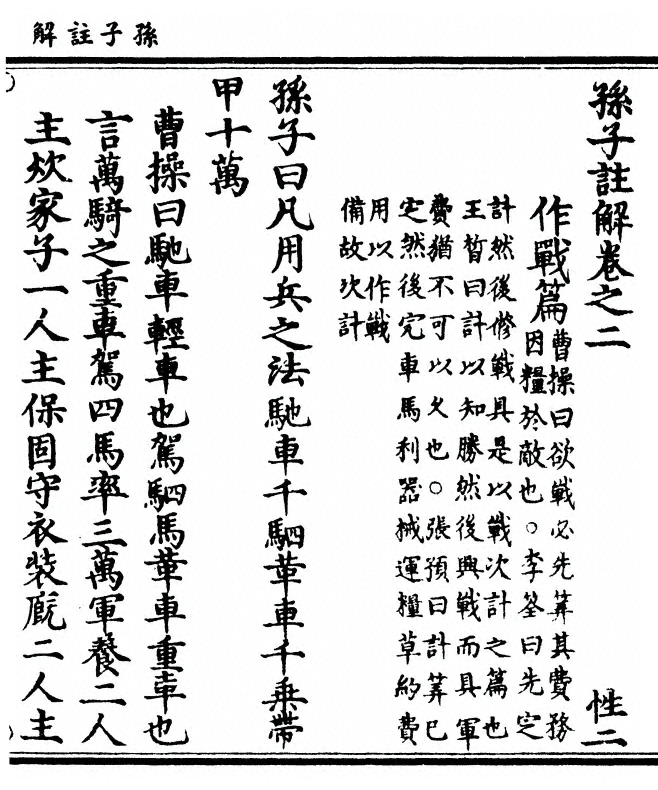 孫子註解
孫子註解卷之二 性二
作戰篇
曹操曰欲戰必先筭其費務
因糧於敵也○李筌曰先定
計然後修戰具是以戰次計之篇也
王晳曰計以知勝然後興戰而具軍
費猶不可以久也○張預曰計筭已
定然後完車馬利器械運糧草約費
用以作戰
備故次計
孫子曰凡用兵之法馳車千駟革車千乗帶
甲十萬
曹操曰馳車輕車也駕駟馬革車重車也
言萬騎之重車駕四馬率三萬軍養二人
主炊家子一人主保固守衣裝廐二人主